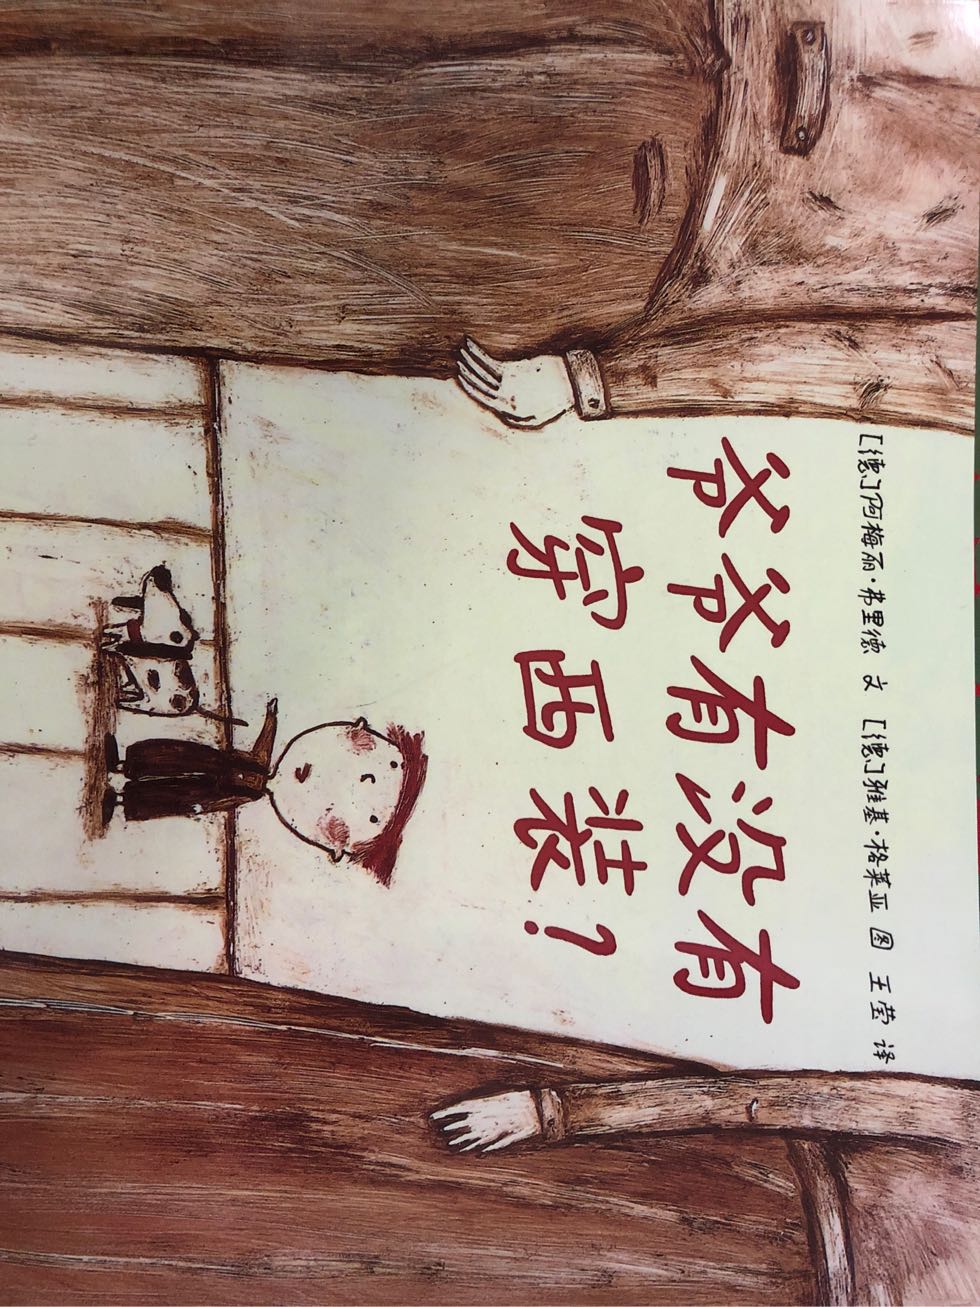 [德]阿梅丽·弗里德 文 [德]雅基·格莱亚 图 王莹 译
爷爷有没有
穿西装？